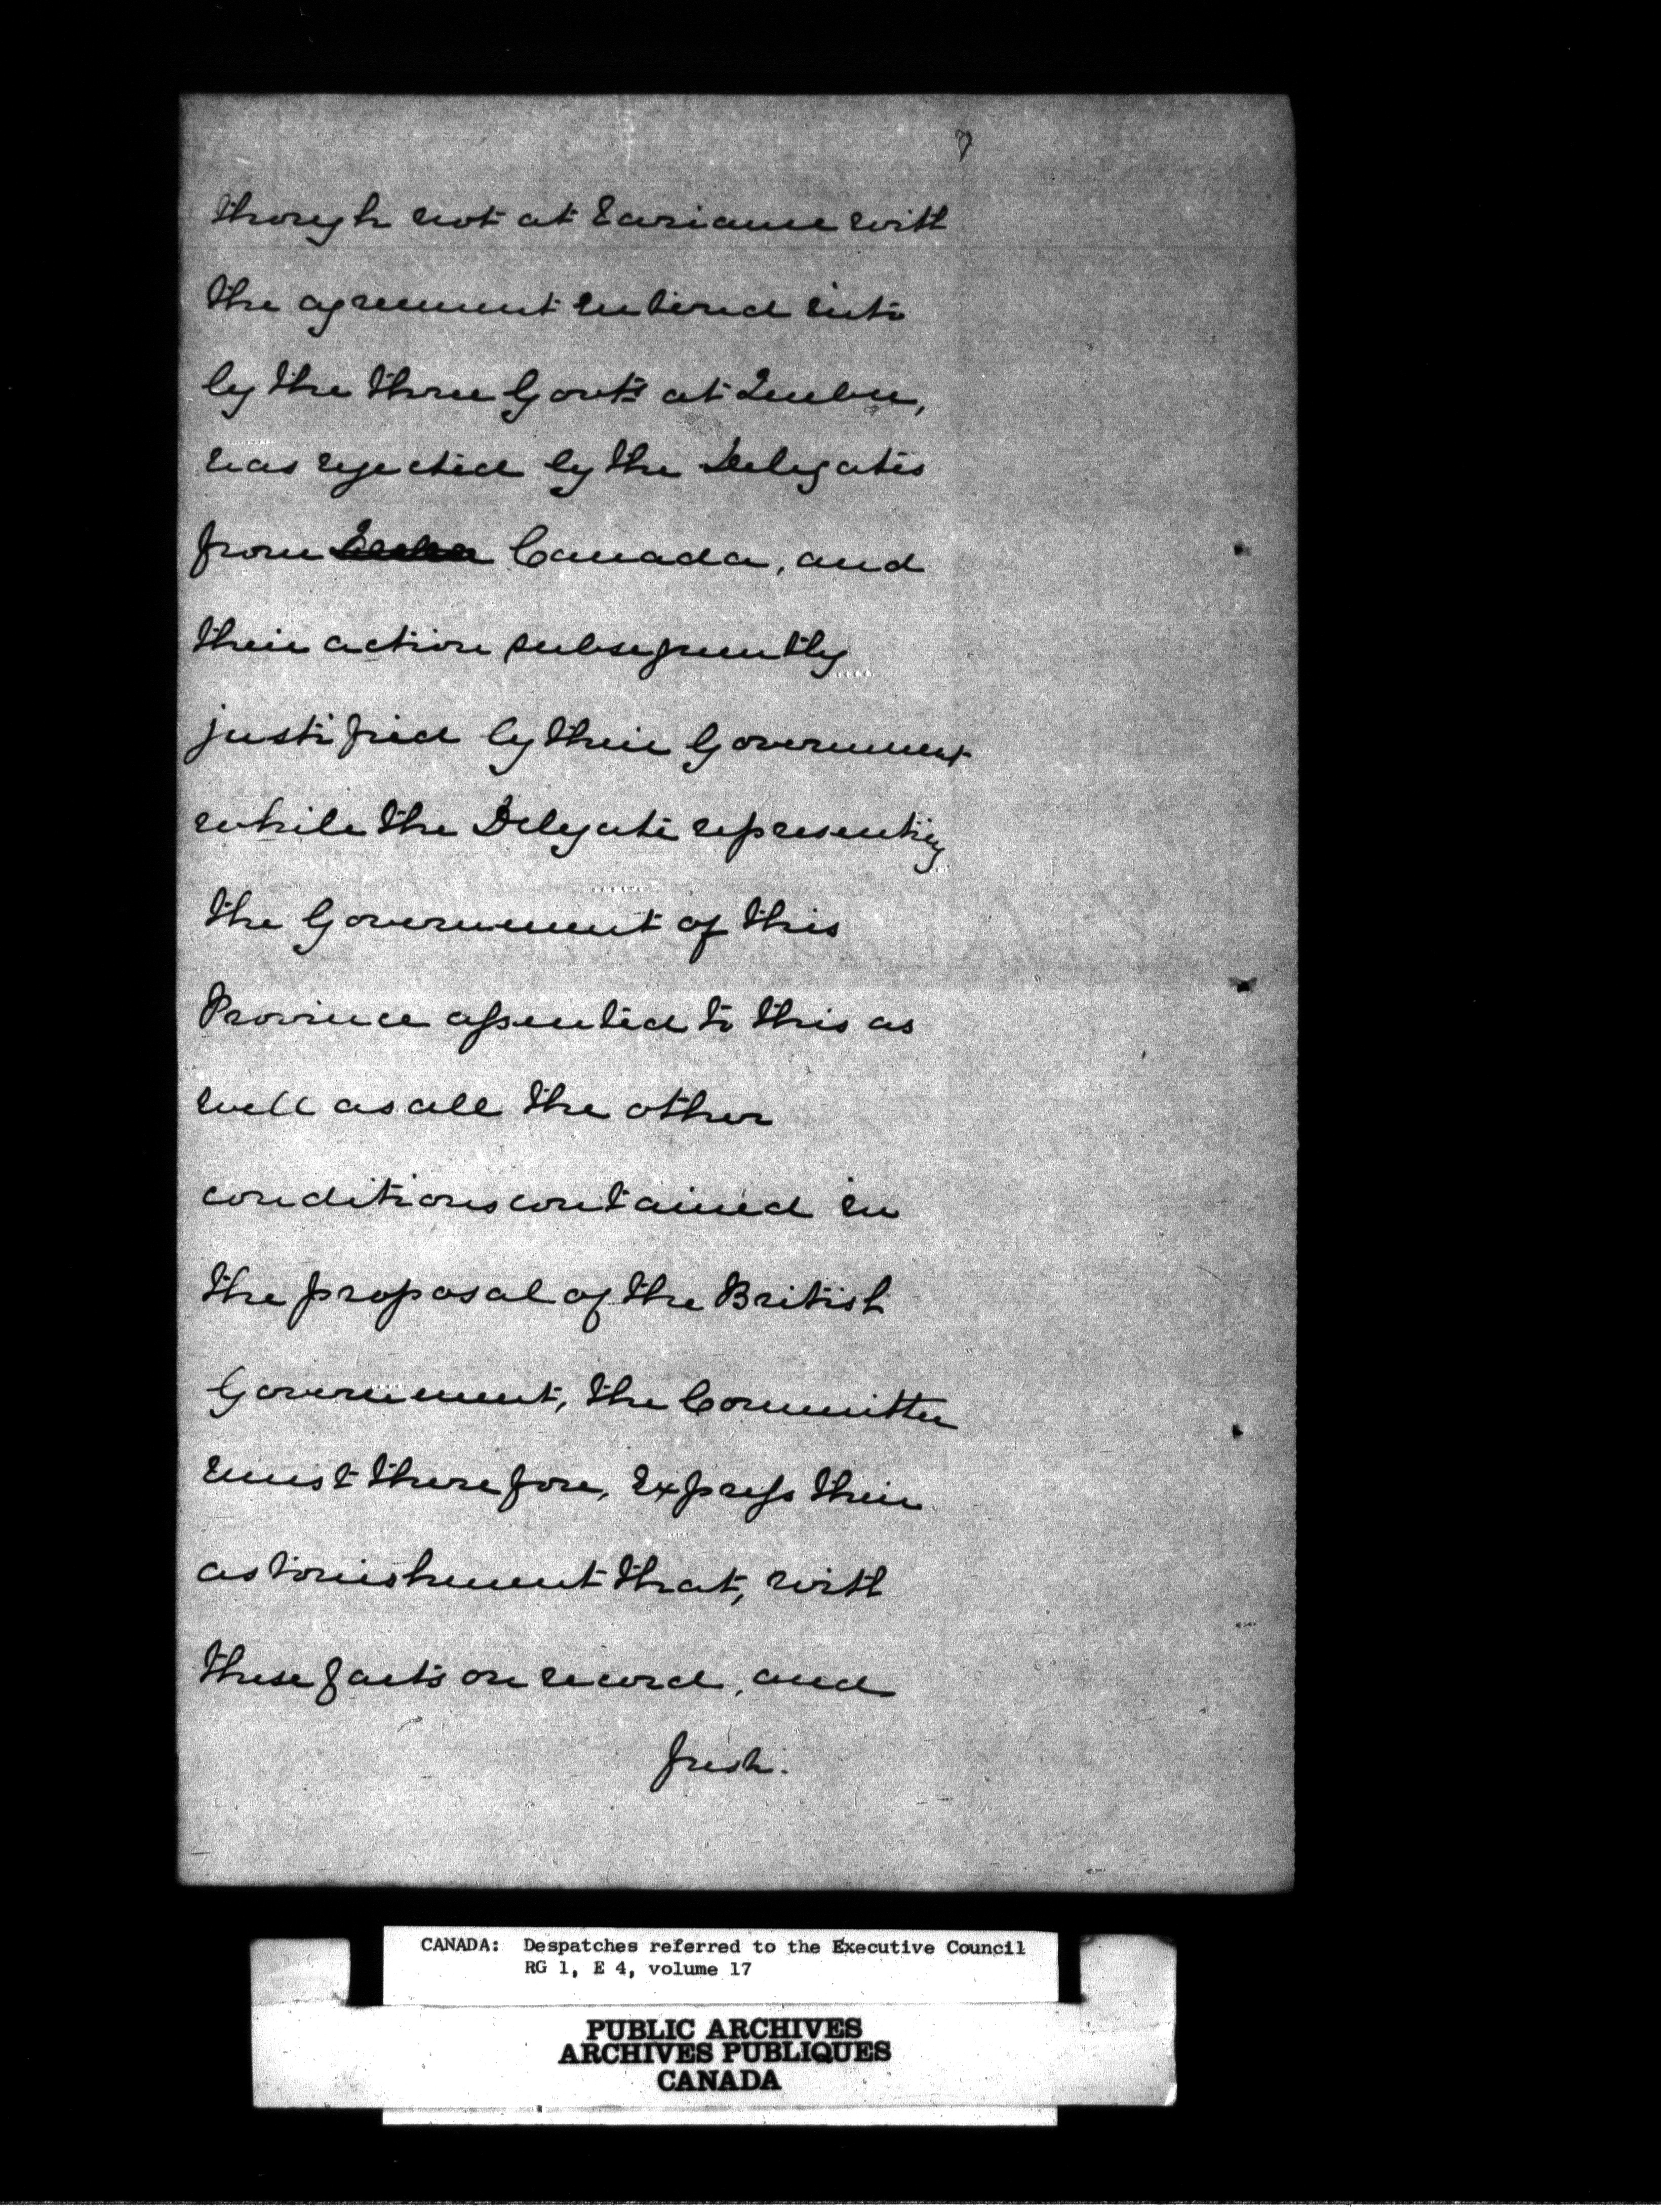 7
though not at variance with
the agreement entered into
by the three Govts at Quebec,
was rejected by the Delegates
from Canada, and
their action subsequently
justified by their Government
while the Delegate representing
the Government of this
Province assented to this as
well as all the other
conditions contained in
the proposal of the British
Government, the Committee
must therefore, express their
astonishment that, with
these facts on record, and
fresh.
CANADA: Despatches referred to the Executive Council
RG 1, E 4, volume 17
PUBLIC ARCHIVES
ARCHIVES PUBLIQUES
CANADA